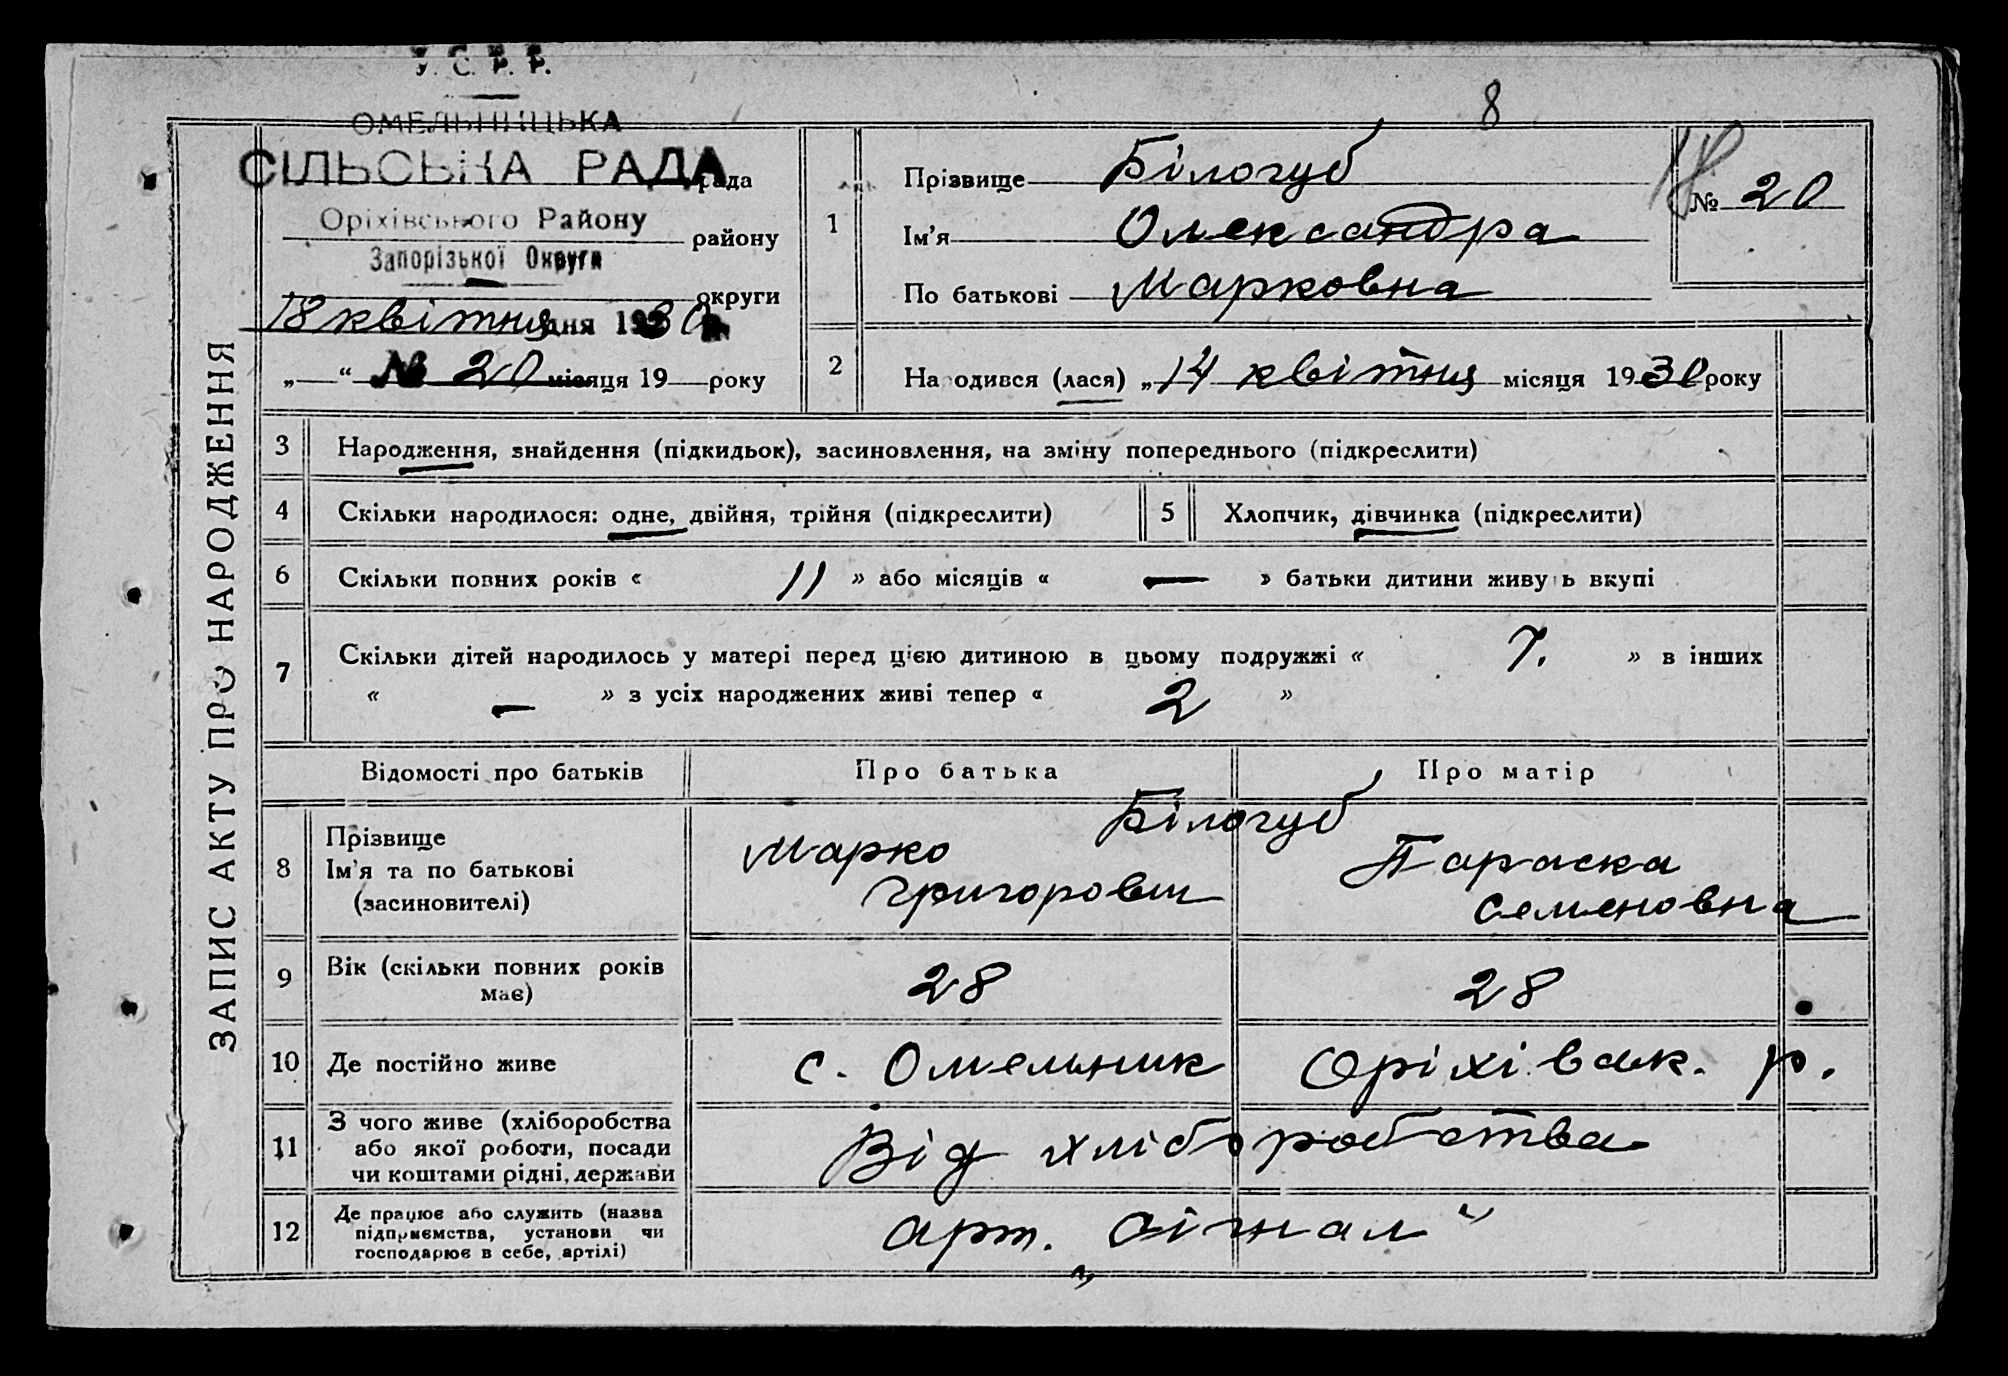 У. С. Р. Р.
ОМЕЛЬНИЦЬКА
СІЛЬСЬКА РАДА рада
Оріхівського Району району
Запорізької Округи
округи
18 квітня дня 1930 р.
№ 20
„ “ місяця 19 року
8
1 Прізвище Білогуб
Ім'я Олександра
По батькові Марковна
№ 20
2 Народився (лася) „14 квітня місяця 1930 року
ЗАПИС АКТУ ПРО НАРОДЖЕННЯ
3 Народження, знайдення (підкидьок), засиновлення, на зміну попереднього (підкреслити)
4 Скільки народилося: одне, двійня, трійня (підкреслити) 5 Хлопчик, дівчинка (підкреслити)
6 Скільки повних років « 11 » або місяців « — » батьки дитини живуть вкупі
7 Скільки дітей народилось у матері перед цією дитиною в цьому подружжі « 7. » в інших
« — » з усіх народжених живі тепер « 2 »
Відомості про батьків Про батька Про матір
8 Прізвище
Ім'я та по батькові
(засиновителі)
Білогуб
Марко
Григорович
Параска
Семеновна
9 Вік (скільки повних років
має)
28 28
10 Де постійно живе с. Омельник Оріхівськ. р.
11 З чого живе (хліборобства
або якої роботи, посади
чи коштами рідні, держави
Від хліборобства
12 Де працює або служить (назва
підприємства, установи чи
господарює в себе, артілі)
арт. „Сігнал“